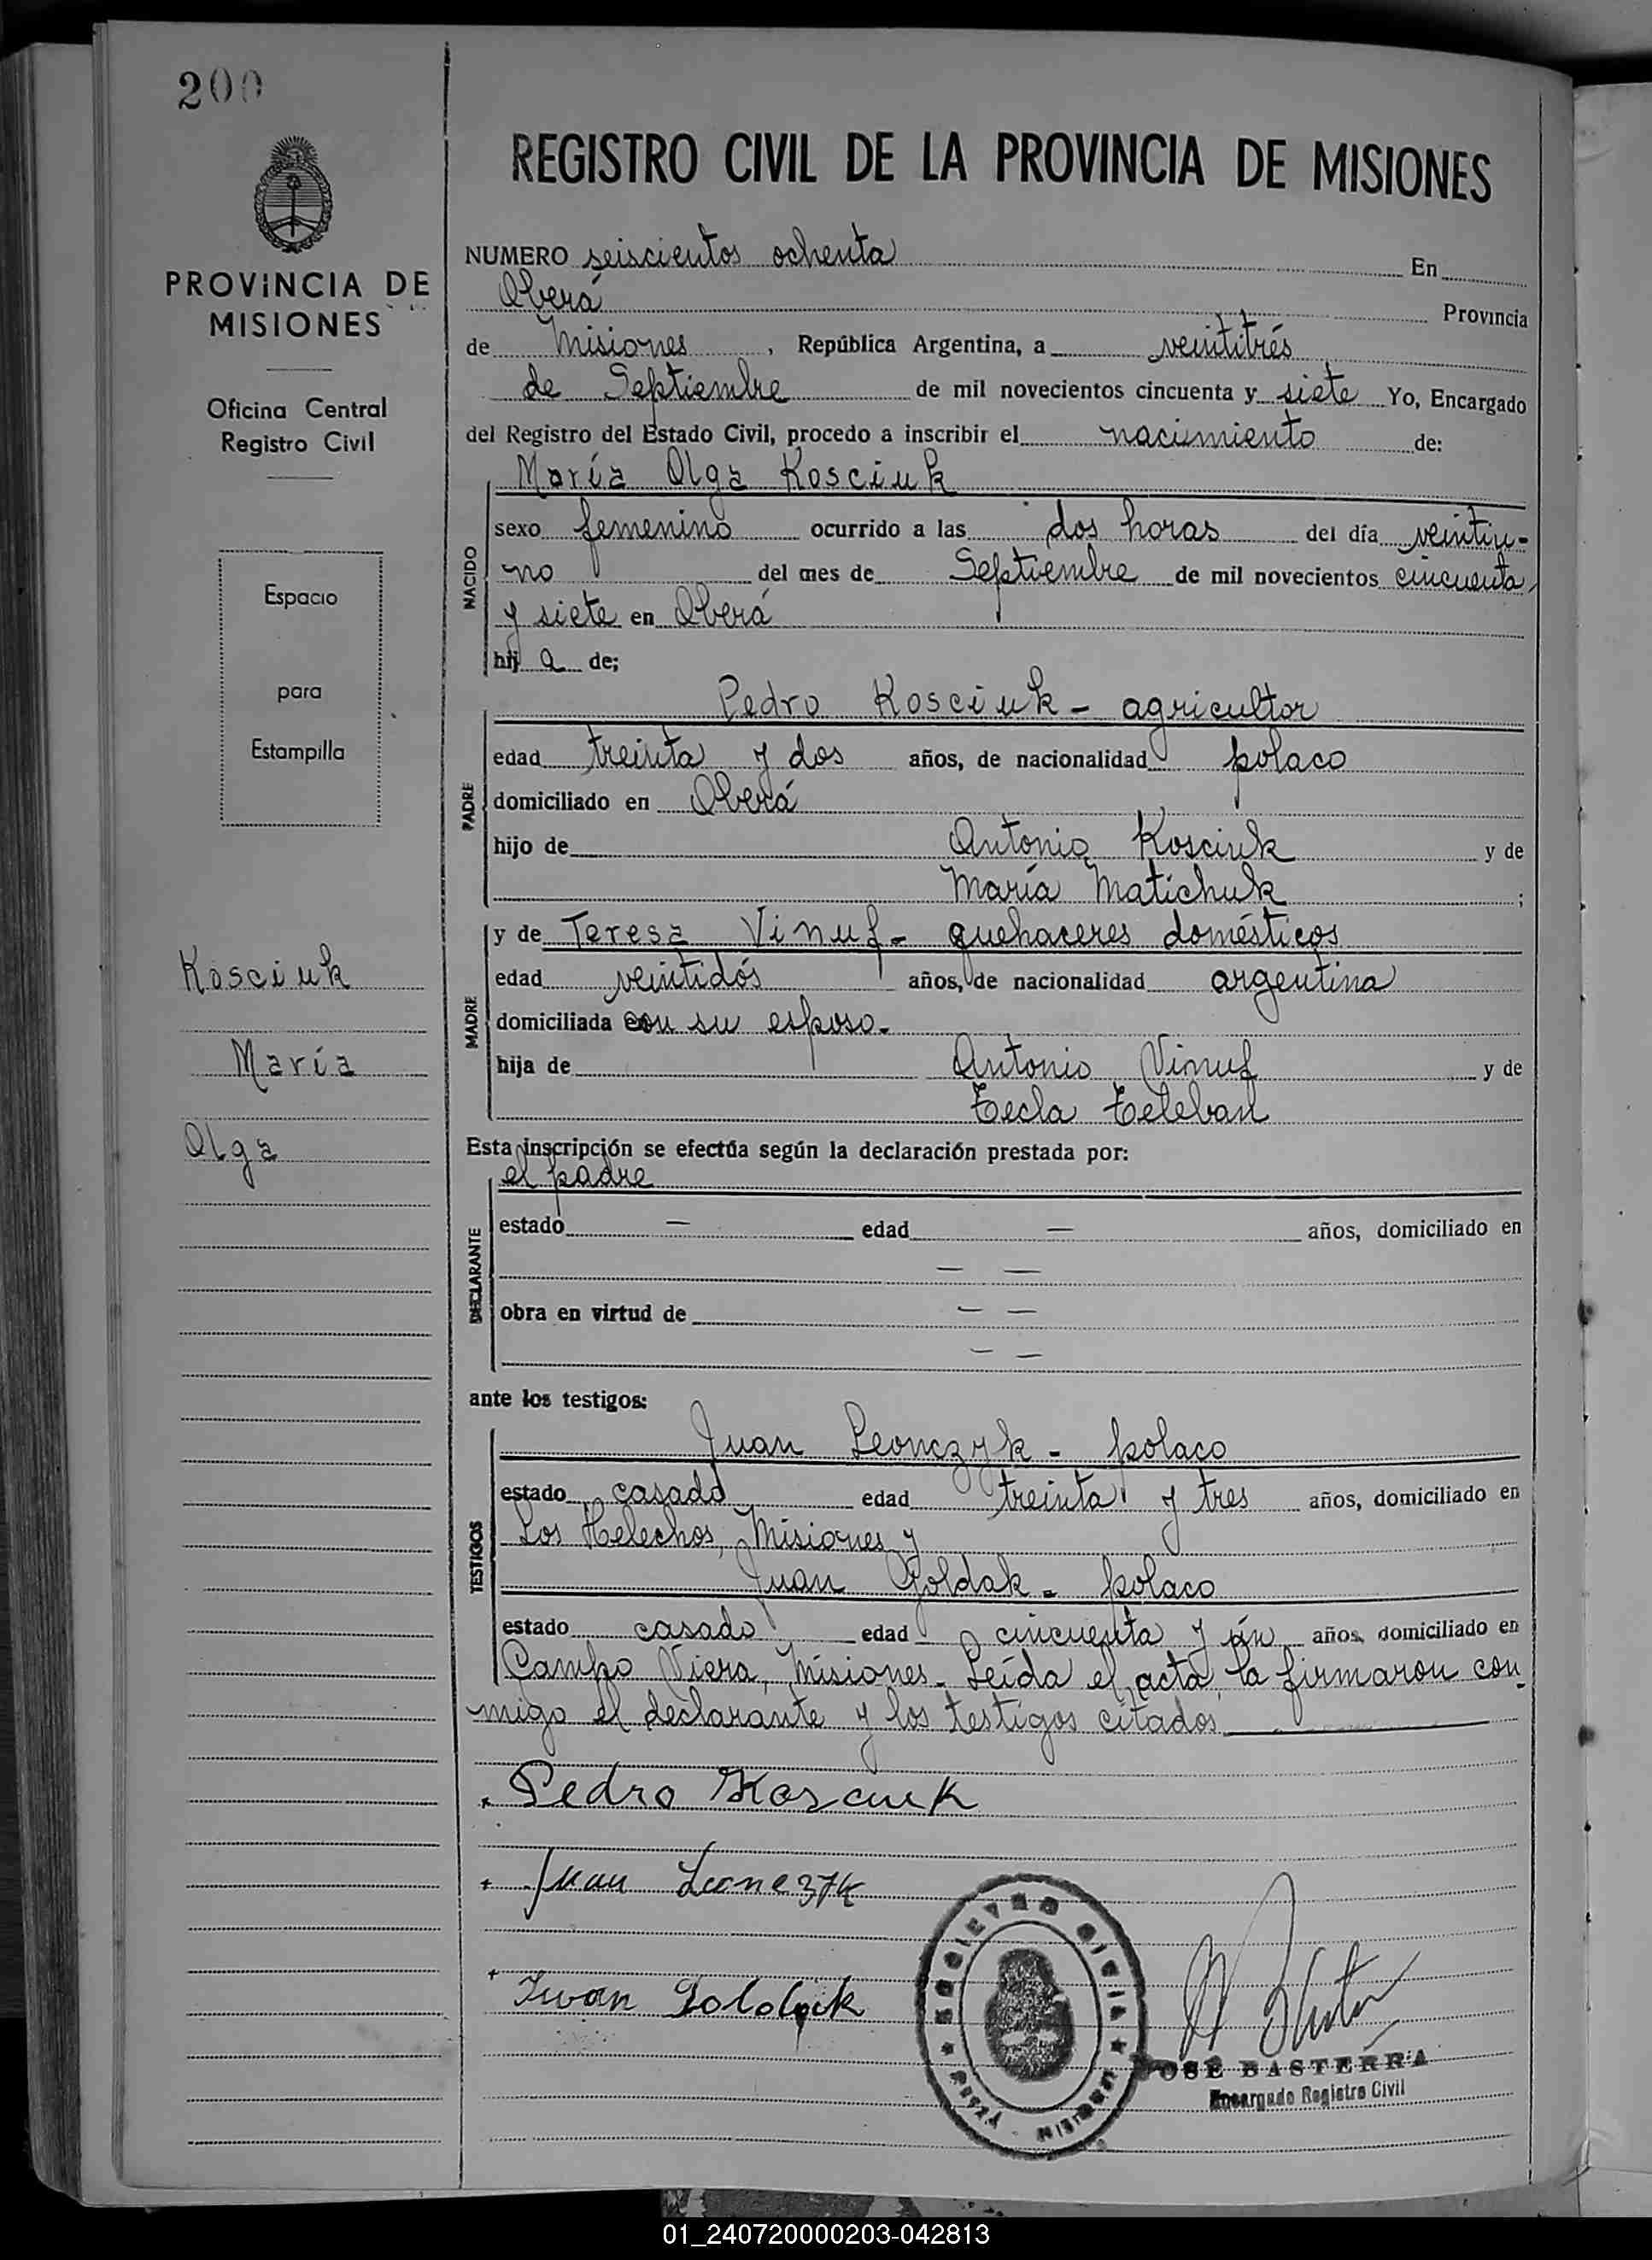 200
PROVINCIA DE
MISIONES
Oficina Central
Registro Civil
Espacio
para
Estampilla
Kosciuk
María
Olga
REGISTRO CIVIL DE LA PROVINCIA DE MISIONES
NUMERO seiscientos ochenta En
Oberá Provincia
de Misiones, República Argentina, a veintitrés
de Septiembre de mil novecientos cincuenta y siete Yo, Encargado
del Registro del Estado Civil, procedo a inscribir el nacimiento de:
María Olga Kosciuk
NACIDO
sexo femenino ocurrido a las dos horas del día veintiu-
no del mes de Septiembre de mil novecientos cincuenta
y siete en Oberá
hij a de;
Pedro Kosciuk - agricultor
PADRE
edad treinta y dos años, de nacionalidad polaco
domiciliado en Oberá
hijo de Antonio Kosciuk y de
María Matichuk ;
y de Teresa Vinuf - quehaceres domésticos
MADRE
edad veintidós años, de nacionalidad argentina
domiciliada con su esposo.
hija de Antonio Vinuf y de
Tecla Teleban
Esta inscripción se efectúa según la declaración prestada por:
el padre
DECLARANTE
estado — edad — años, domiciliado en
— —
obra en virtud de — —
— —
ante los testigos:
TESTIGOS
Juan Leonczyk - polaco
estado casado edad treinta y tres años, domiciliado en
Los Helechos, Misiones y
Juan Goldak - polaco
estado casado edad cincuenta y un años, domiciliado en
Campo Viera, Misiones. Leída el acta, la firmaron con-
migo el declarante y los testigos citados
Pedro Kosciuk
Juan Leonczyk
Iwan
REGISTRO CIVIL
OBERÁ - MISIONES
JOSÉ BASTERRA
Encargado Registro Civil
01_240720000203-042813